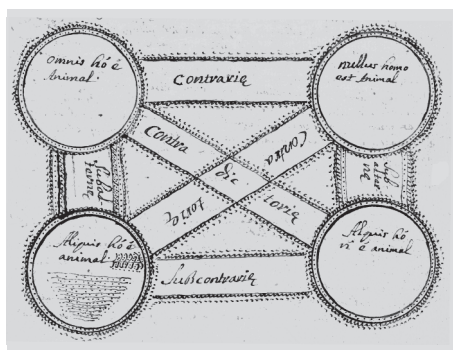 omnis hō ē
animal.
Contrariæ
nullus homo
est animal
Contra
Contra
dic
toriæ
toriæ
Subal
Aliquis hō ē
animal
Subcontrariæ
Aliquis hō
n̄ ē animal